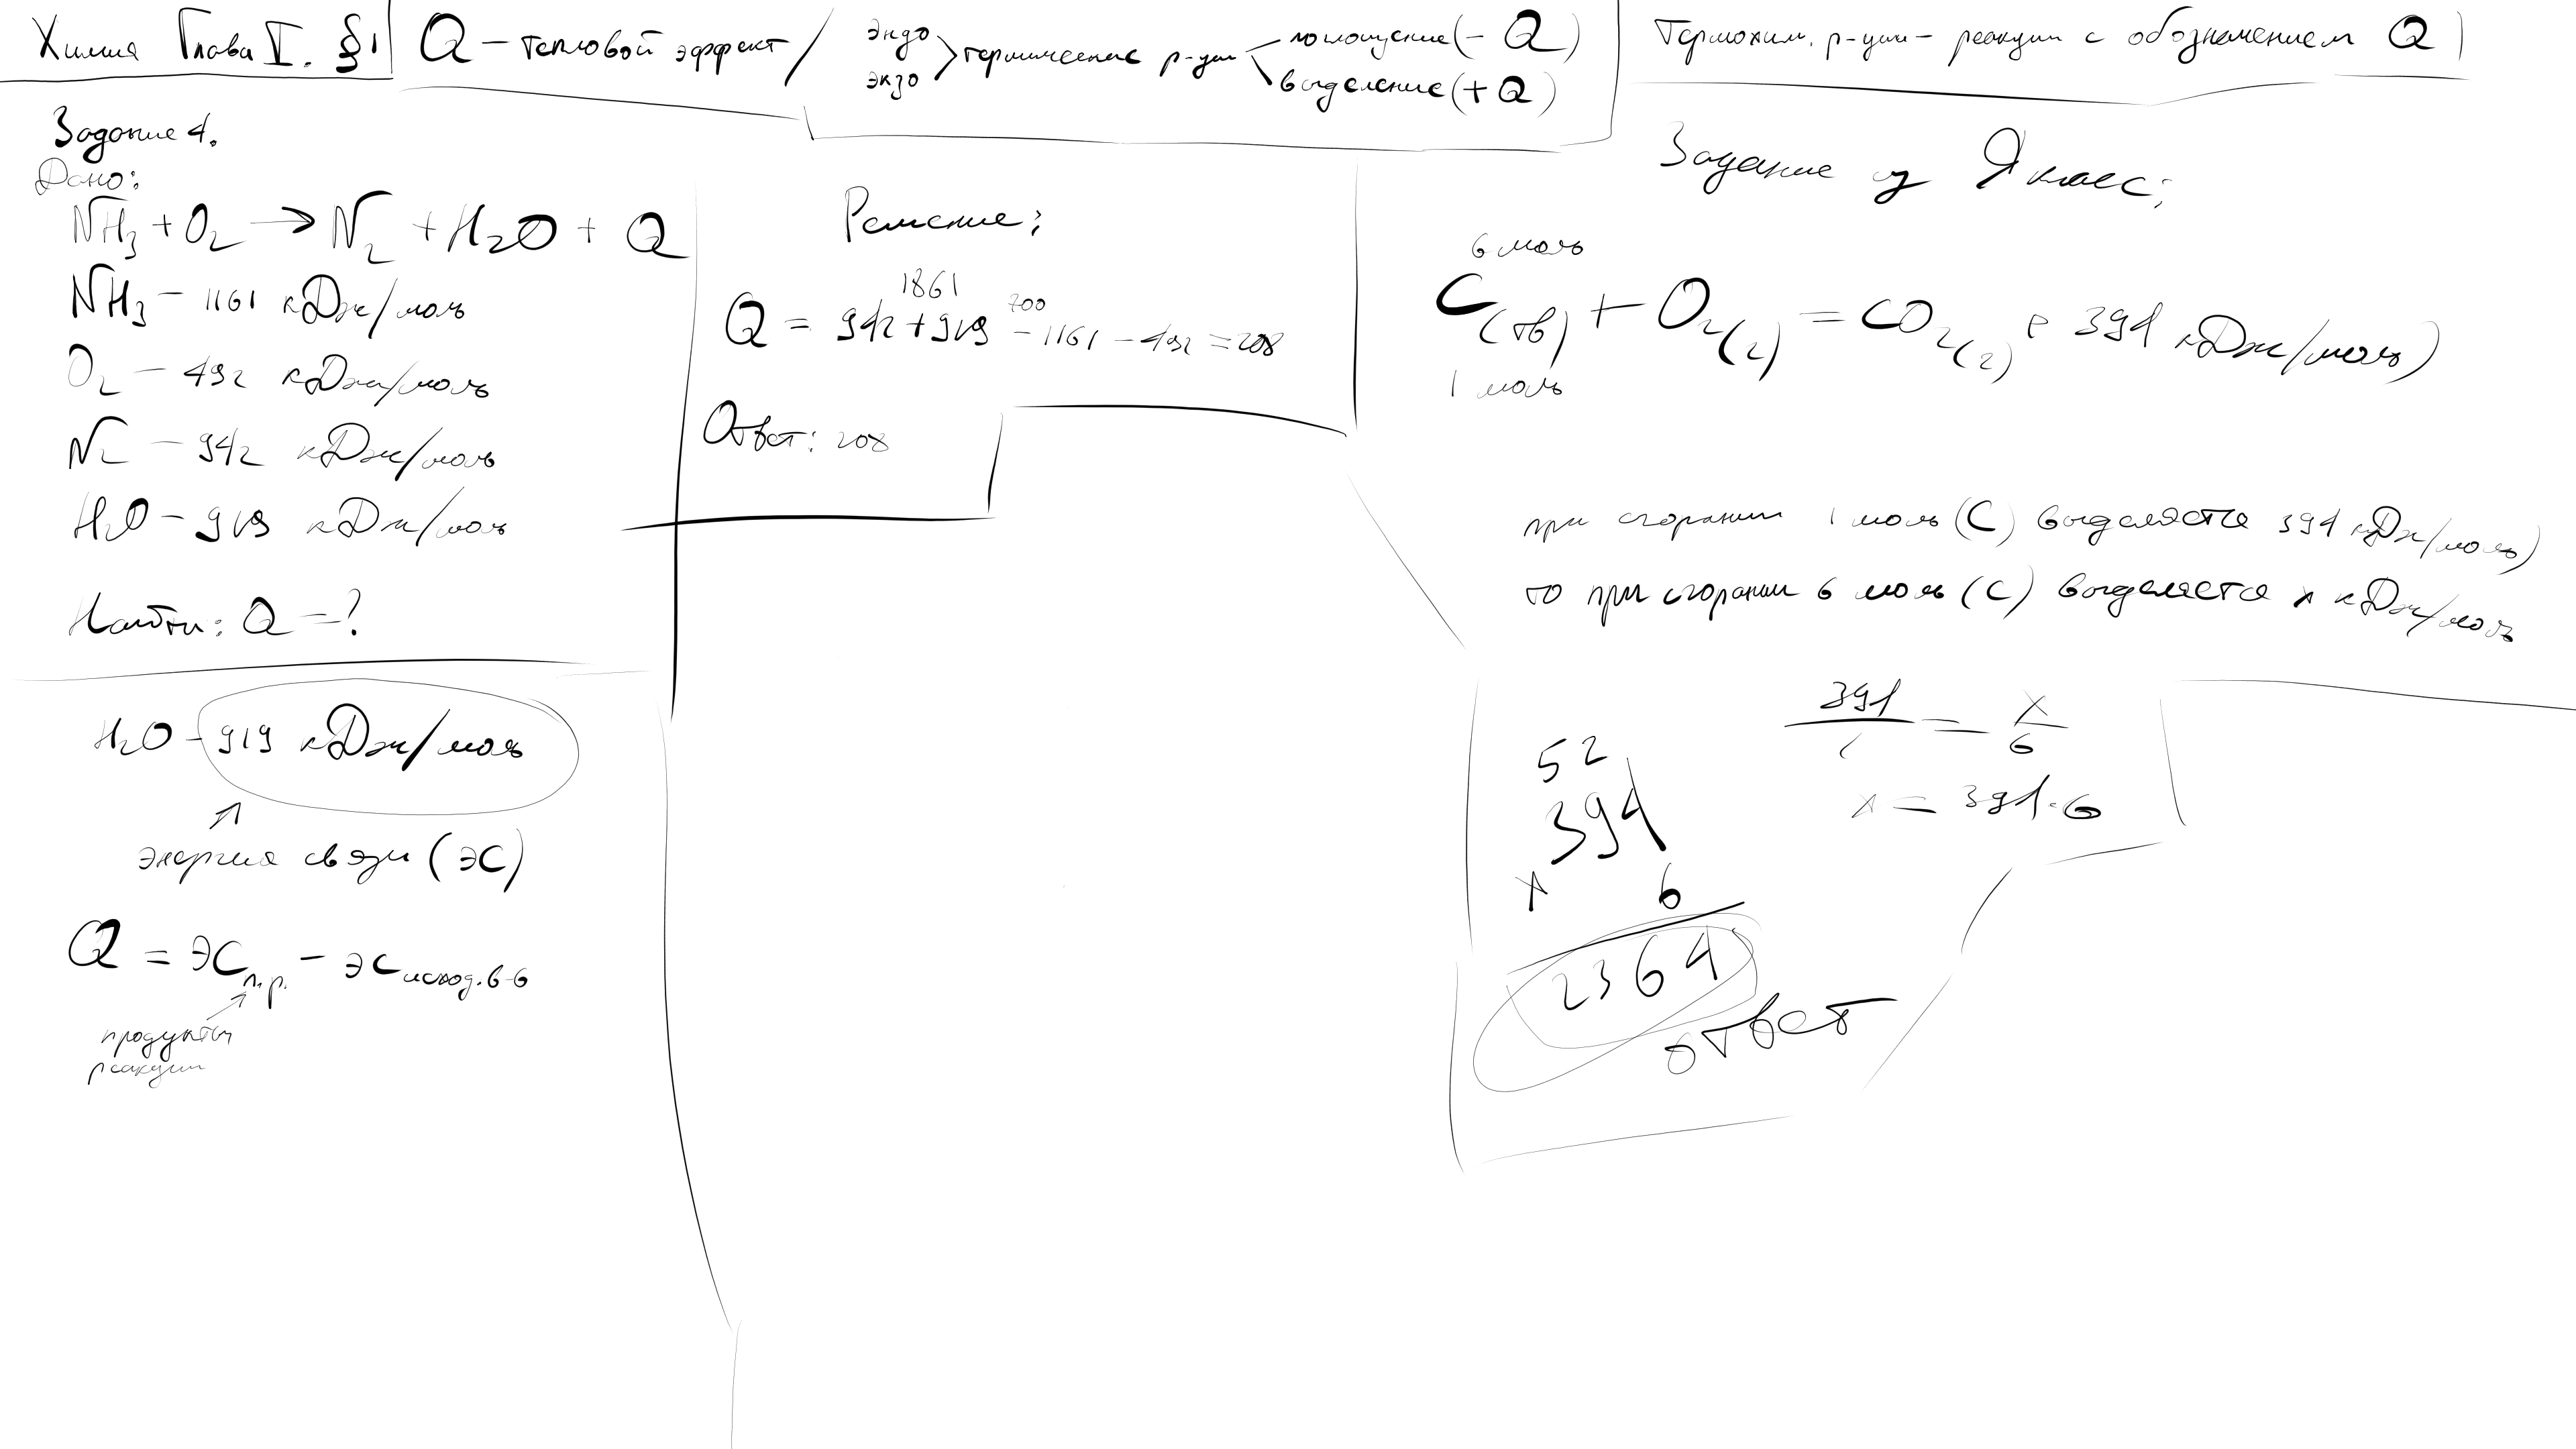 Химия Глава I. §1
Q – тепловой эффект
эндо
экзо
термические р-ции
поглощение (– Q)
выделение (+ Q)
Термохим. р-ции – реакции с обозначением Q
Задание 4.
Дано:
NH3 + O2 → N2 + H2O + Q
NH3 – 1161 кДж/моль
O2 – 492 кДж/моль
N2 – 942 кДж/моль
H2O – 919 кДж/моль
Найти: Q – ?
H2O – 919 кДж/моль
энергия связи (ЭС)
Q = ЭС п.р. – ЭС исход. в-в
продукты
реакции
Решение:
1861
700
Q = 942 + 919 – 1161 – 492 = 208
Ответ: 208
Задание из Я класс:
6 моль
C(тв) + O2(г) = CO2(г) 394 кДж/моль)
1 моль
при сгорании 1 моль (C) выделяется 394 кДж/моль)
то при сгорании 6 моль (C) выделяется x кДж/моль
394 / 1 = x / 6
x = 394 · 6
52
394
x 6
2364
ответ